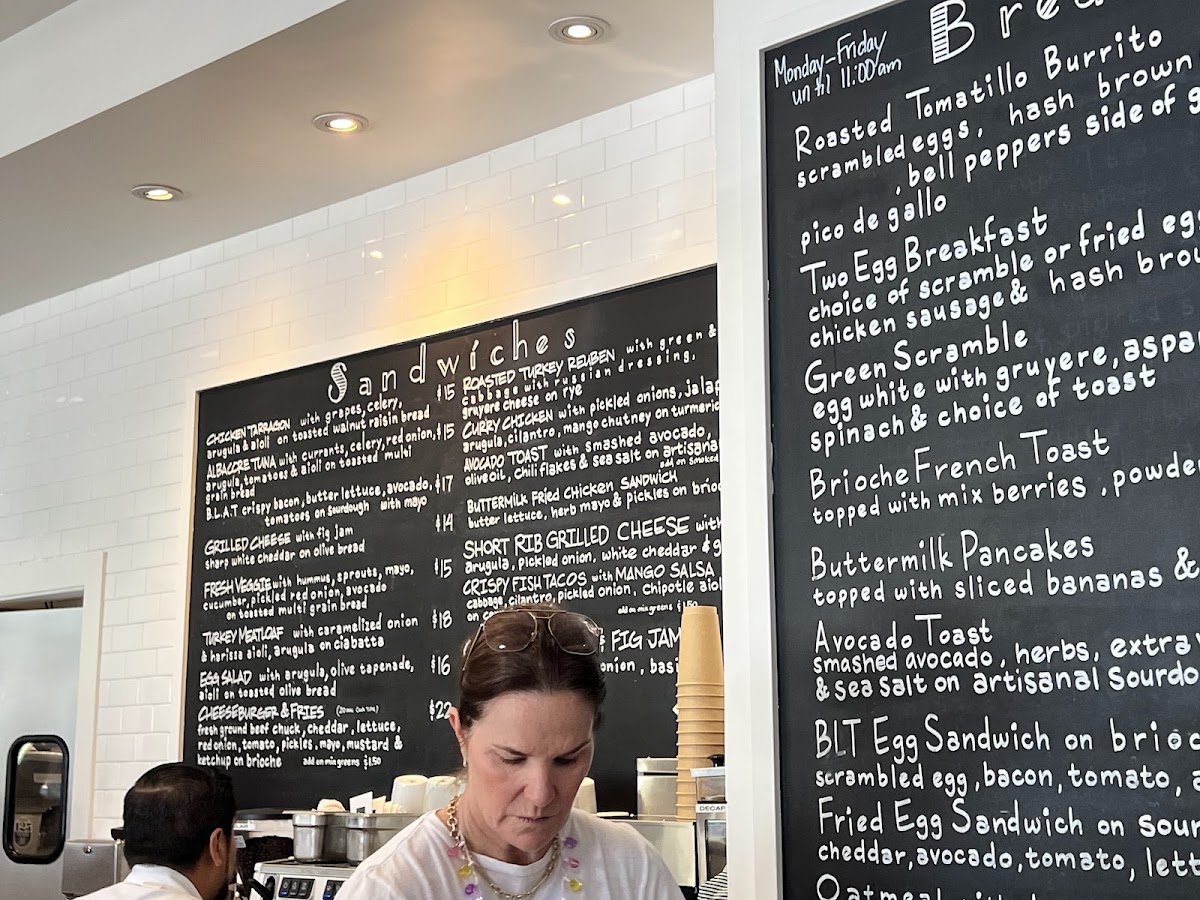 Sandwiches
CHICKEN TARRAGON with grapes, celery, $15
arugula & aioli on toasted walnut raisin bread
ALBACORE TUNA with currants, celery, red onion, $15
arugula, tomatoes & aioli on toasted multi
grain bread
B.L.A.T crispy bacon, butter lettuce, avocado, $17
tomatoes on sourdough with mayo
GRILLED CHEESE with fig jam $14
sharp white cheddar on olive bread
FRESH VEGGIE with hummus, sprouts, mayo, $15
cucumber, pickled red onion, avocado
on toasted multi grain bread
TURKEY MEATLOAF with caramelized onion $18
& harissa aioli, arugula on ciabatta
EGG SALAD with arugula, olive tapenade, $16
aioli on toasted olive bread
CHEESEBURGER & FRIES $22
fresh ground beef chuck, cheddar, lettuce,
red onion, tomato, pickles, mayo, mustard &
ketchup on brioche add on mix greens $1.50
ROASTED TURKEY REUBEN, with green &
cabbage with russian dressing,
gruyere cheese on rye
CURRY CHICKEN with pickled onions, jalap
arugula, cilantro, mango chutney on turmeric
AVOCADO TOAST with smashed avocado,
olive oil, chili flakes & sea salt on artisana
add on smoked
BUTTERMILK Fried CHICKEN SANDWICH
butter lettuce, herb mayo & pickles on brioc
SHORT RIB GRILLED CHEESE with
arugula, pickled onion, white cheddar & g
CRISPY FISH TACOS with MANGO SALSA
cabbage, cilantro, pickled onion, Chipotle aiol
on co
add on mix greens $1.50
FIG JAM
onion, basi
DECAF
Brea
Monday-Friday
until 11:00am
Roasted Tomatillo Burrito
scrambled eggs, hash brown
, bell peppers side of g
pico de gallo
Two Egg Breakfast
choice of scramble or fried eg
chicken sausage & hash brow
Green Scramble
egg white with gruyere, aspa
spinach & choice of toast
Brioche French Toast
topped with mix berries, powde
Buttermilk Pancakes
topped with sliced bananas &
Avocado Toast
smashed avocado, herbs, extra
& sea salt on artisanal sourdo
BLT Egg Sandwich on brioc
scrambled egg, bacon, tomato, a
Fried Egg Sandwich on sour
cheddar, avocado, tomato, lett
Oatmeal with